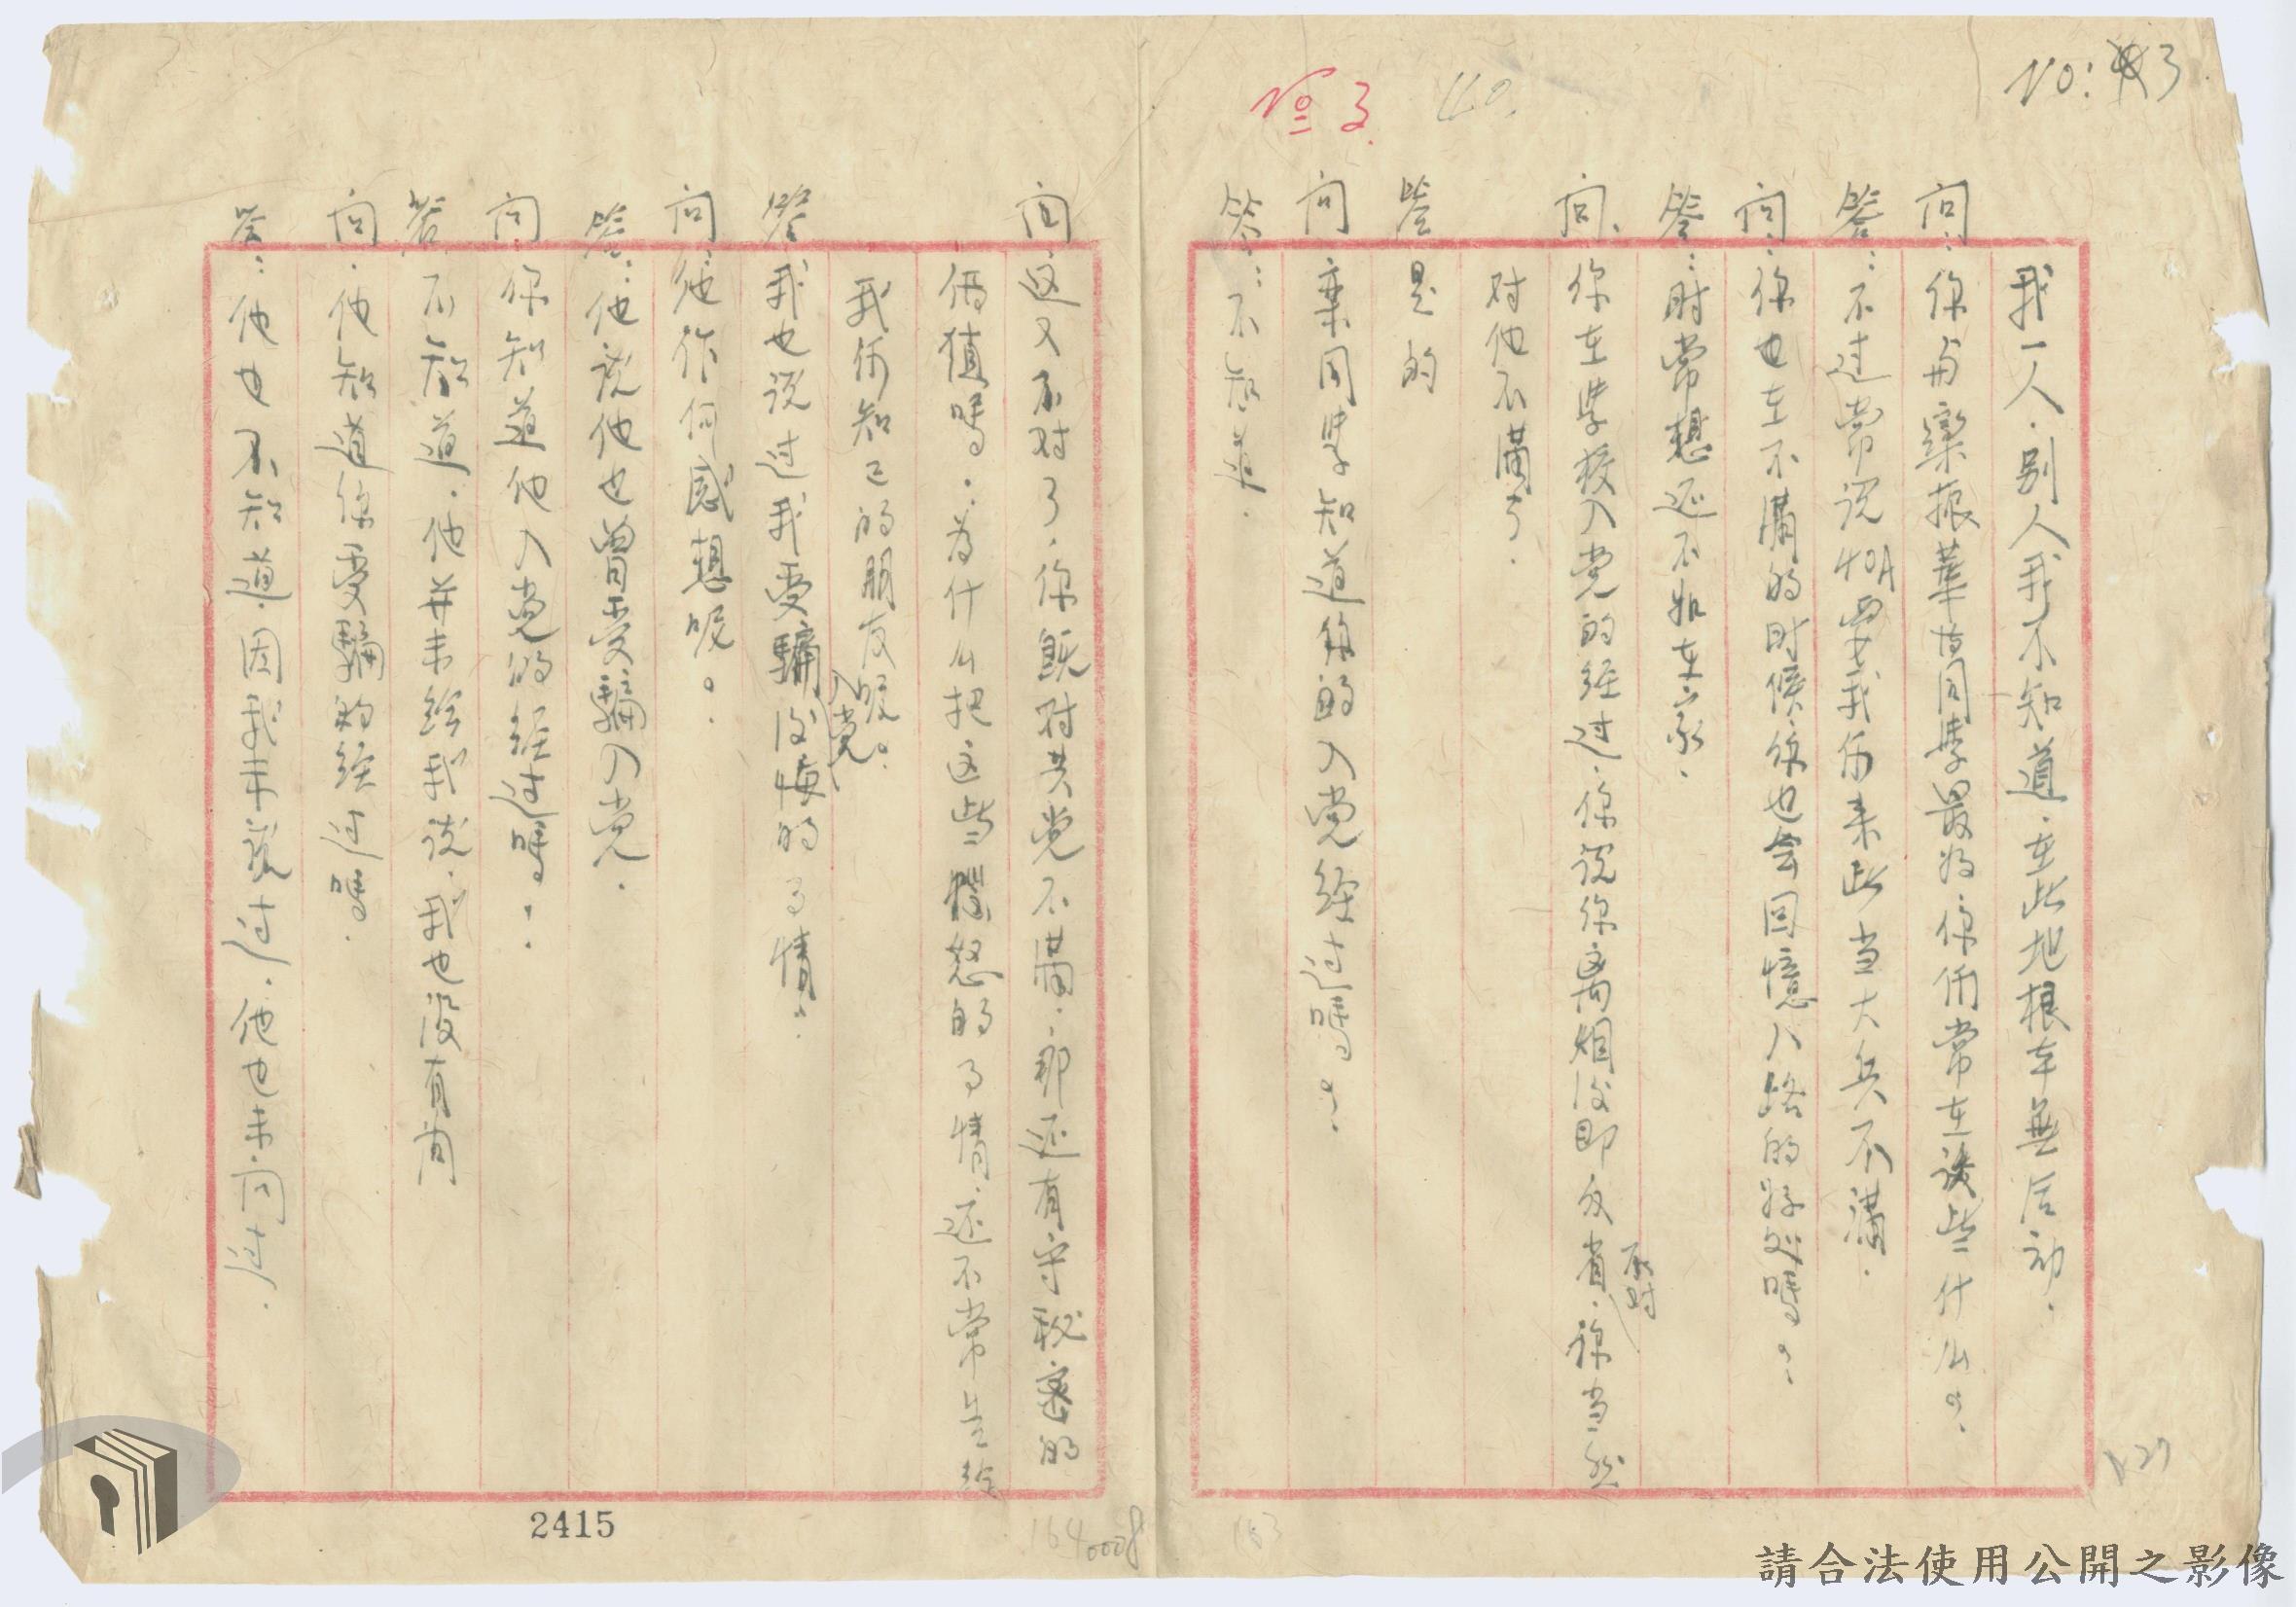 NO: 3
No 3.
我一人．别人我不知道．在此地根本無活动．
问：你与欒振華等同學最好你俩常在谈些什么？
答：不过常说40A要我们来此当大兵不满．
问：你也在不满的时候你也会回憶入路的好处嗎？
答：时常想还不如在家．
问、你在學校入党的经过．你说你离烟後即反省．你当然
那时
对他不满了．
答 是的
问 栾同學知道你的入党经过嗎？
答：不知道．
问 这又不对了．你既对共党不满．那还有守秘密的
價值嗎．为什么把这些 怒的事情．还不常告给
我俩知己的朋友呢？
答 我也说过我受騙入党後悔的事情．
问 他作何感想呢？
答：他说他也曾受騙入党．
问 你知道他入党的经过嗎？
答 不知道．他并未给我说．我也没有问
问．他知道你受騙的经过嗎．
答：他也不知道．因我未说过．他也未问过．
2415
164
0008
163
127
請合法使用公開之影像